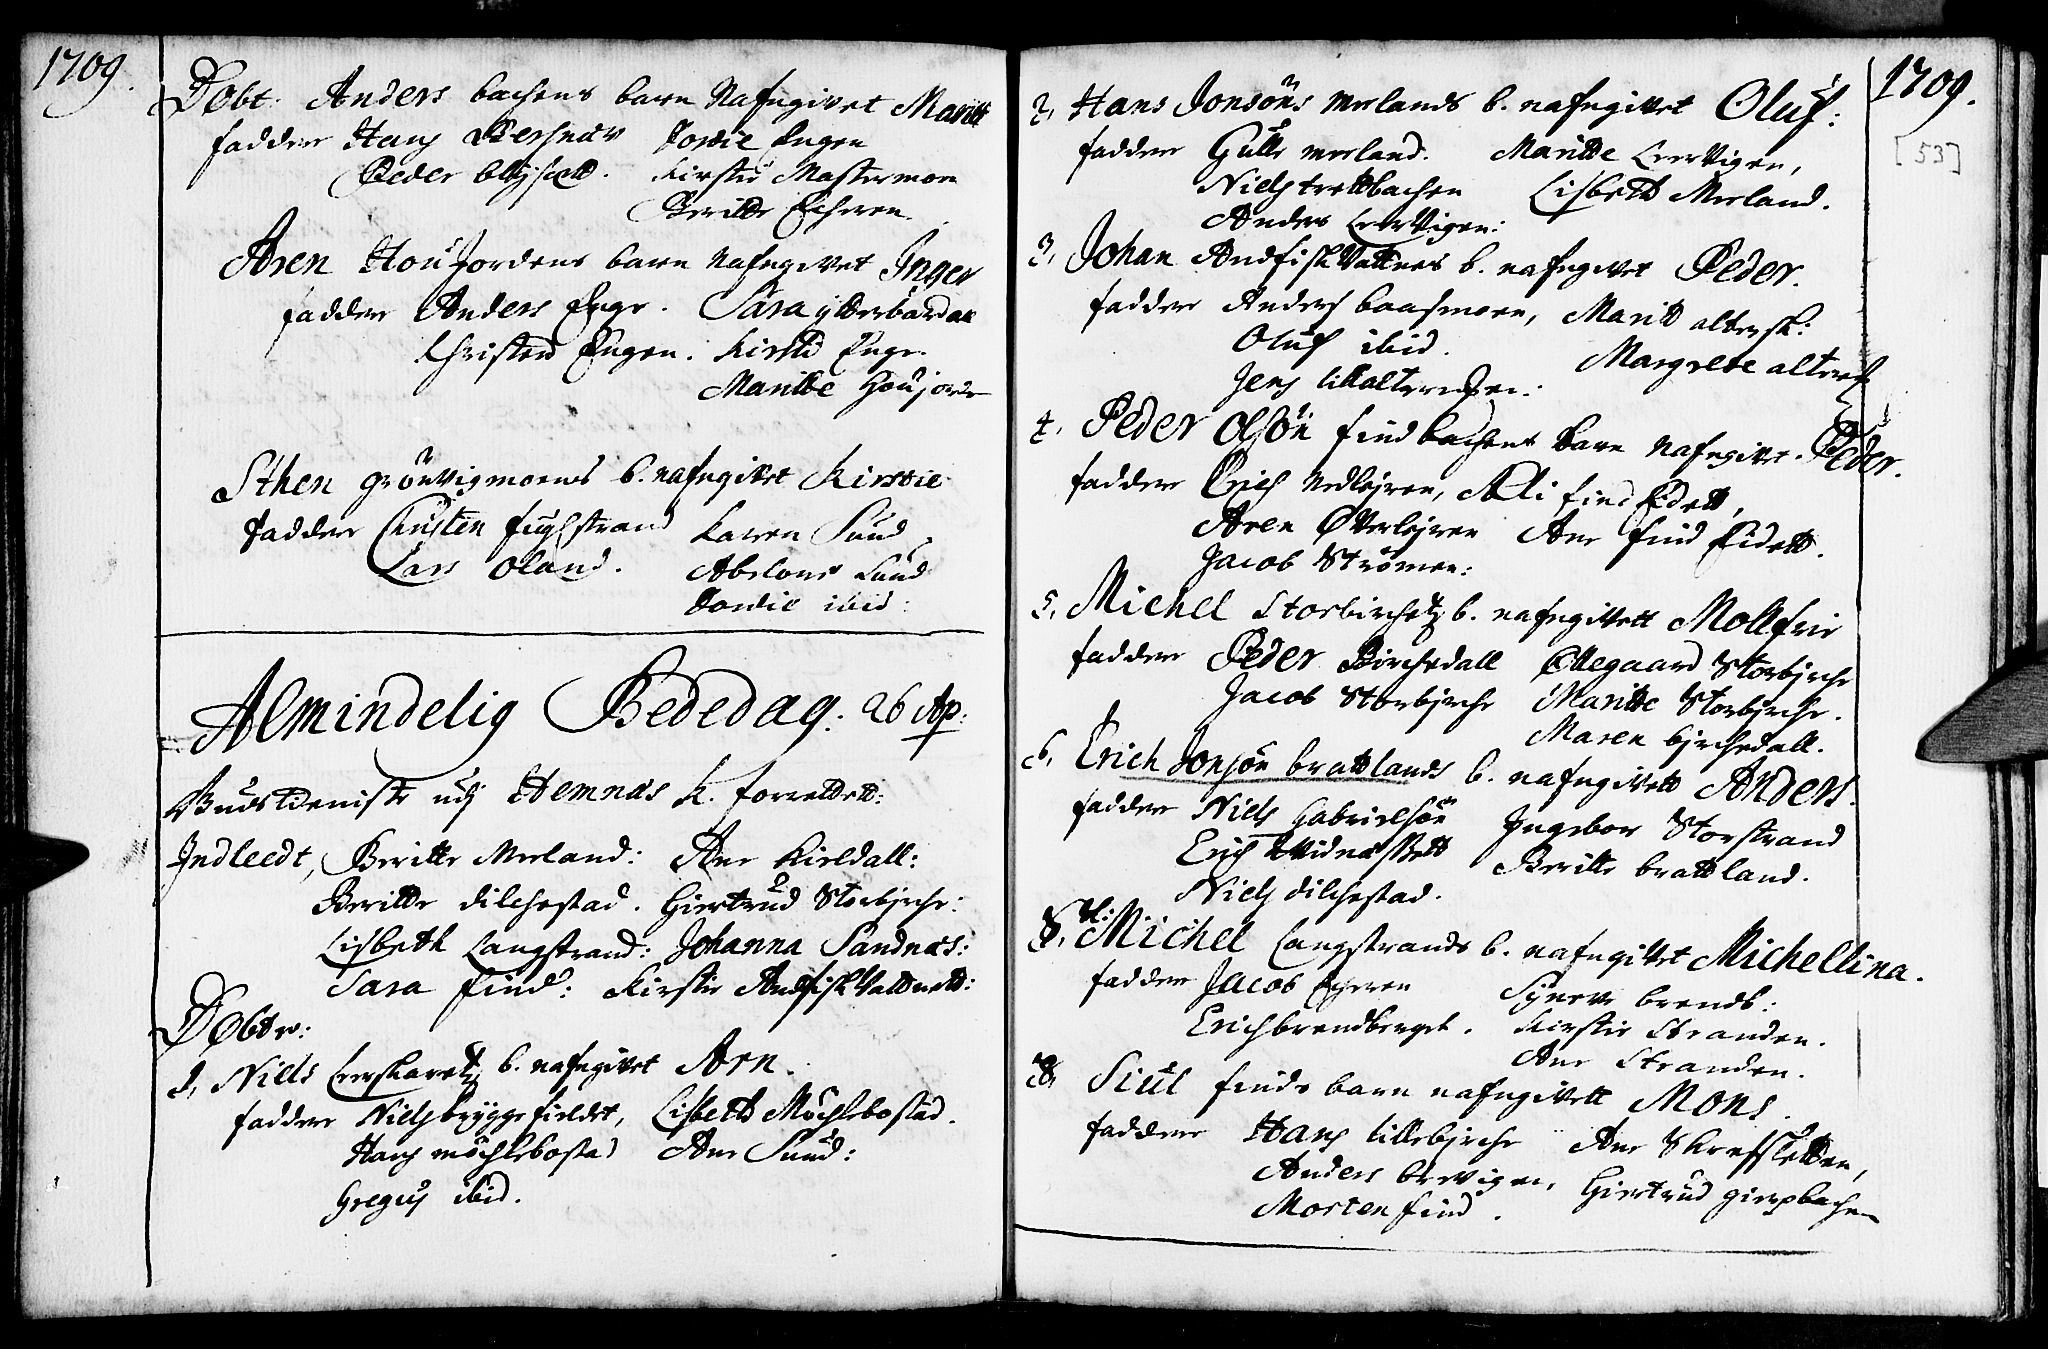 1709.
Døbt: Anders bachens barn Nafngivet Maritt
faddere Hans Dordie Engen
Peder Kirstie Mastermoen
Beritte Echeren.
Aren Houjordens barn Nafngivet Inger
faddere Anders Enge. Sara ytterbardal
Christen Engen. Kirsti Enge.
Maritte Houjorde
Sthen grönvigmoens b. nafngivet Kirstie
faddere Christen fuglstrand Karen Sund
Lars Oland. Abelone Sund
Dordie ibid:
Almindelig Bededag: 26 Ap:
Gudstieniste udj Hemnæs K. forrettet:
Indleedt, Beritte Meeland: Ane Kieldall:
Beritte dilchestad. Giertrud Storbjrche:
Lisbeth Langstrand: Johanna Sandnæs:
Sara find: Kirstie Andfiskvattnett:
Døbte:
1, Niels Leerskaretz b. nafngivet Arn.
faddere Niels bryggefieldet, Lisbett Möchlebostad.
Hans möchlebostad Ane Sund:
Gregus ibid.
1709.
[53]
2, Hans Jonsöns Meelands b. nafngivet Oluf:
faddere Gulle meeland. Maritte Leervigen,
Niels trettbachen Lisbett Meeland.
Anders Leervigen:
3, Johan Andfiskvattnes b. nafngivet Peder.
faddere Anders baasmoen, Maritt alteresk:
Oluf ibid. Margrete alteresk
Jens lillalteren:
4, Peder Olsön findbachens barn Nafngivet Peder.
faddere Erich Nedlejren, Ali find Eidett,
Aren Øverlejren Ane find Eidett.
Jacob Strömen:
5, Michel Storbirchetz b. nafngivett Mollfrie
faddere Peder Birchedall Ollegaard Storbjrche
Jacob Storbjrche Maritte Storbjrche.
Maren bjrchedall.
6, Erich Jonsön brattlands b. nafngivett Anders.
faddere Niels Gabrielsön Ingebor Storstrand
Erich Beritte brattland.
Niels dilchestad.
7, Sl: Michel Langstrands b. nafngivet Michellina.
faddere Jacob Echeren Synove brendb:
Erich brendberget. Kirstie Stranden.
Ane Stranden.
8, Siul finds barn nafngivett Mons.
faddere Hans lillebjrche Ane Skresletten,
Anders brevigen, Giertrud
Morten find.